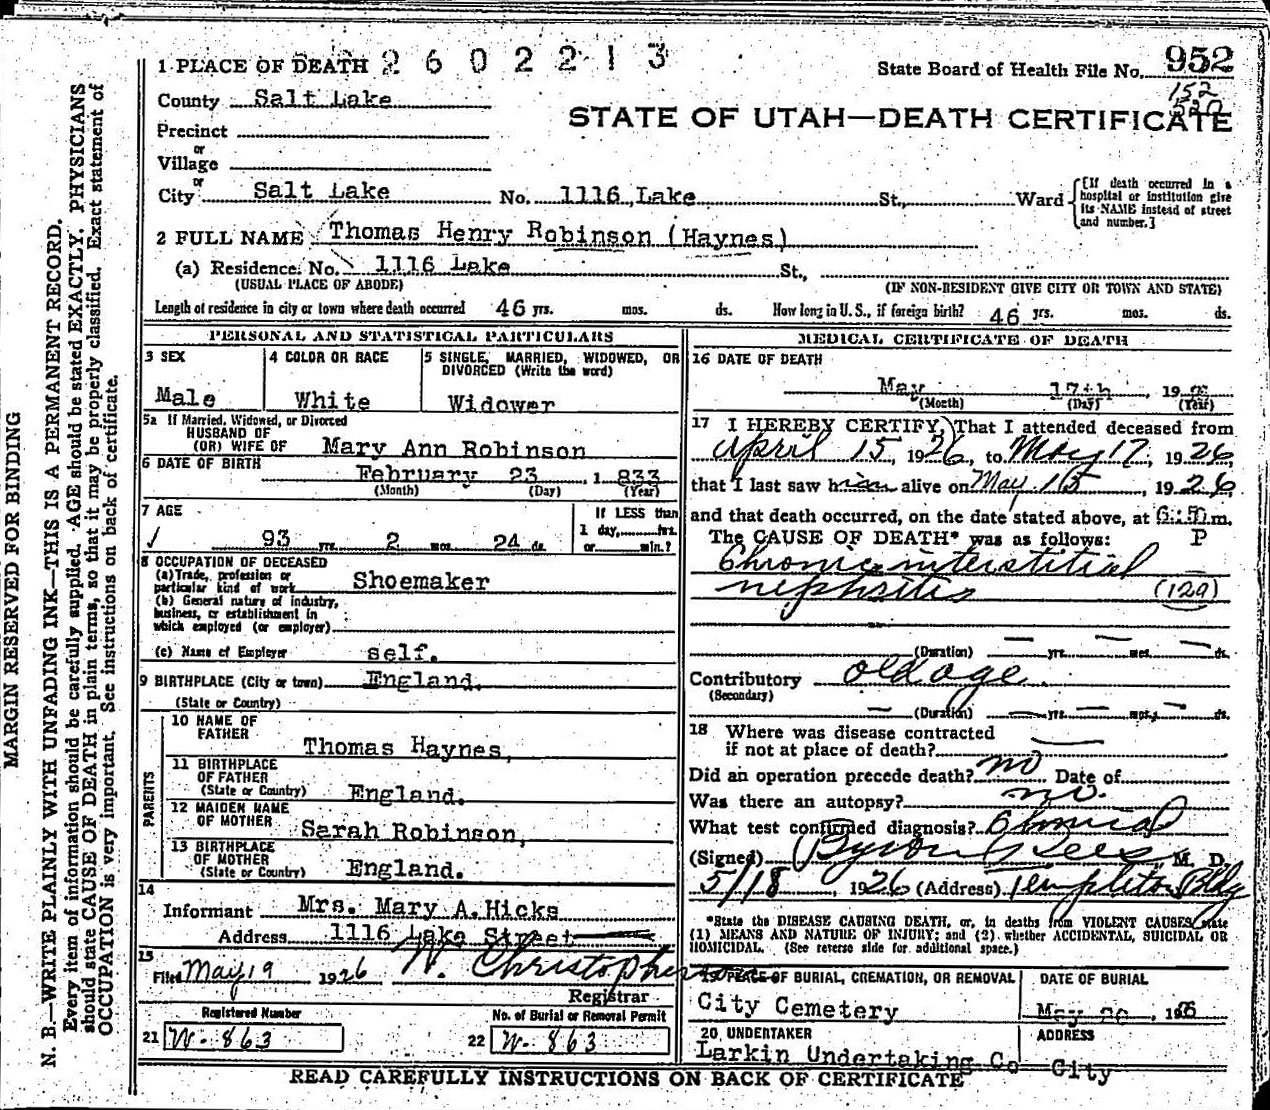 1 PLACE OF DEATH 2602213
State Board of Health File No. 952
152
County Salt Lake
STATE OF UTAH—DEATH CERTIFICATE
Precinct
or
Village
or
City Salt Lake No. 1116 Lake St., Ward
{If death occurred in a hospital or institution give its NAME instead of street and number.}
2 FULL NAME Thomas Henry Robinson (Haynes)
(a) Residence. No. 1116 Lake St.,
(USUAL PLACE OF ABODE) (IF NON-RESIDENT GIVE CITY OR TOWN AND STATE)
Length of residence in city or town where death occurred 46 yrs. mos. ds. How long in U. S., if foreign birth? 46 yrs. mos. ds.
PERSONAL AND STATISTICAL PARTICULARS
3 SEX
Male
4 COLOR OR RACE
White
5 SINGLE, MARRIED, WIDOWED, OR
DIVORCED (Write the word)
Widower
5a If Married, Widowed, or Divorced
HUSBAND OF
(OR) WIFE OF Mary Ann Robinson
6 DATE OF BIRTH February 23, 1833
(Month) (Day) (Year)
7 AGE
93 yrs. 2 mos. 24 ds.
If LESS than
1 day, hrs.
or min.?
8 OCCUPATION OF DECEASED
(a) Trade, profession or
particular kind of work Shoemaker
(b) General nature of industry,
business, or establishment in
which employed (or employer)
(c) Name of Employer self.
9 BIRTHPLACE (City or town) England.
(State or Country)
PARENTS
10 NAME OF
FATHER Thomas Haynes,
11 BIRTHPLACE
OF FATHER
(State or Country) England.
12 MAIDEN NAME
OF MOTHER Sarah Robinson,
13 BIRTHPLACE
OF MOTHER
(State or Country) England.
14
Informant Mrs. Mary A. Hicks
Address 1116 Lake Street
15
Filed May 19 1926 W. Christopherson
Registrar
Registered Number
21 W-863
No. of Burial or Removal Permit
22 W-863
MEDICAL CERTIFICATE OF DEATH
16 DATE OF DEATH
May 17th, 19
(Month) (Day) (Year)
17 I HEREBY CERTIFY, That I attended deceased from
April 15, 1926, to May 17, 1926
that I last saw him alive on May 15, 1926
and that death occurred, on the date stated above, at m.
The CAUSE OF DEATH* was as follows: P
Chronic interstitial
nephritis (129)
(Duration) yrs. mos. ds.
Contributory old age
(Secondary)
(Duration) yrs. mos. ds.
18 Where was disease contracted
if not at place of death?
Did an operation precede death? no Date of
Was there an autopsy? no.
What test confirmed diagnosis? Clinical
(Signed) Byron Rees M. D.
5/18, 1926 (Address) Templeton Bldg
*State the DISEASE CAUSING DEATH, or, in deaths from VIOLENT CAUSES, state
(1) MEANS AND NATURE OF INJURY; and (2) whether ACCIDENTAL, SUICIDAL OR
HOMICIDAL. (See reverse side for additional space.)
19 PLACE OF BURIAL, CREMATION, OR REMOVAL
City Cemetery
DATE OF BURIAL
May 20, 1926
20 UNDERTAKER
Larkin Undertaking Co
ADDRESS
City
READ CAREFULLY INSTRUCTIONS ON BACK OF CERTIFICATE
MARGIN RESERVED FOR BINDING
N. B.—WRITE PLAINLY WITH UNFADING INK—THIS IS A PERMANENT RECORD.
Every item of information should be carefully supplied. AGE should be stated EXACTLY. PHYSICIANS
should state CAUSE OF DEATH in plain terms, so that it may be properly classified. Exact statement of
OCCUPATION is very important. See instructions on back of certificate.